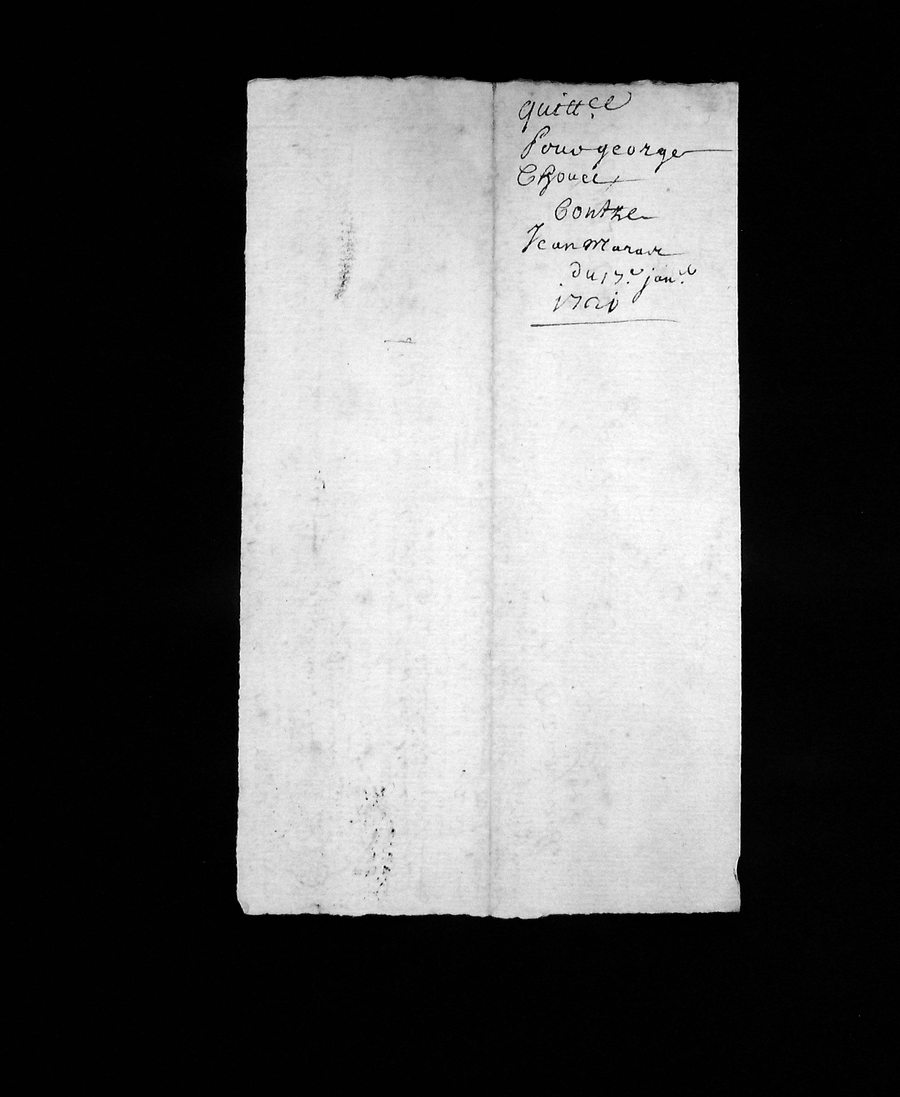 quittce
Pour george
Chouci
Contre
Jean Marar
du 17e janr
1721